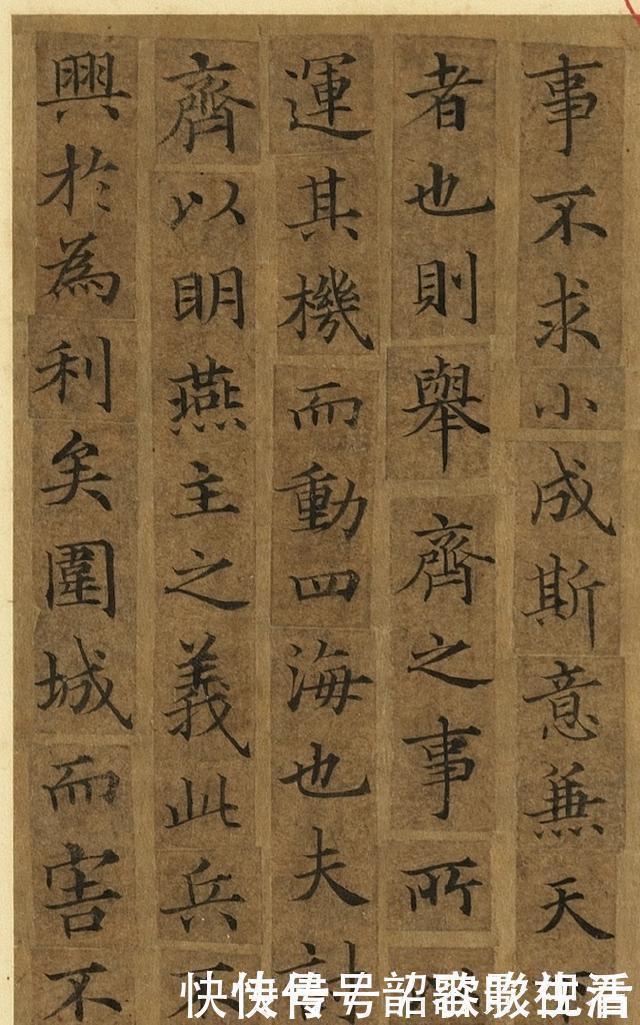 事不求小成斯意兼天
者也則舉齊之事所
運其機而動四海也夫討
齊以明燕主之義此兵不
興於為利矣圍城而害不